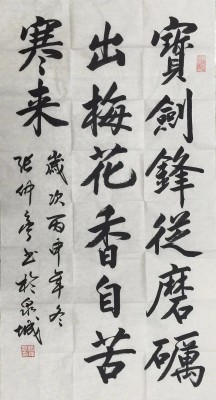 寶劍鋒從磨礪
出梅花香自苦
寒来
歲次丙申年冬
張仲亭书於泉城